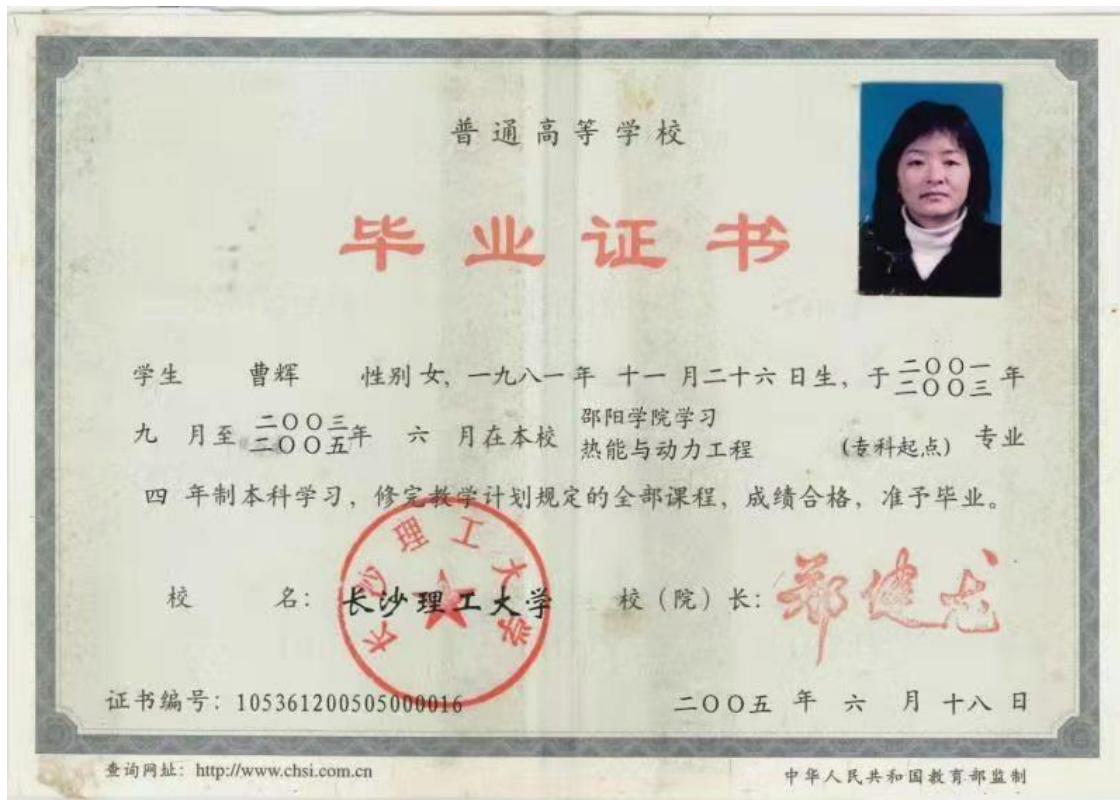 普通高等学校
毕业证书
学生 曹辉 性别 女, 一九八一年 十一 月二十六 日生, 于 二〇〇一 年
二〇〇三
九 月至 二〇〇三 年 六 月在本校 邵阳学院学习 (专科起点) 专业
二〇〇五 热能与动力工程
四 年制本科学习, 修完教学计划规定的全部课程, 成绩合格, 准予毕业。
长沙理工大学
校 名: 长沙理工大学 校(院)长: 郑健龙
证书编号: 105361200505000016 二〇〇五 年 六 月 十八 日
查询网址: http://www.chsi.com.cn 中华人民共和国教育部监制